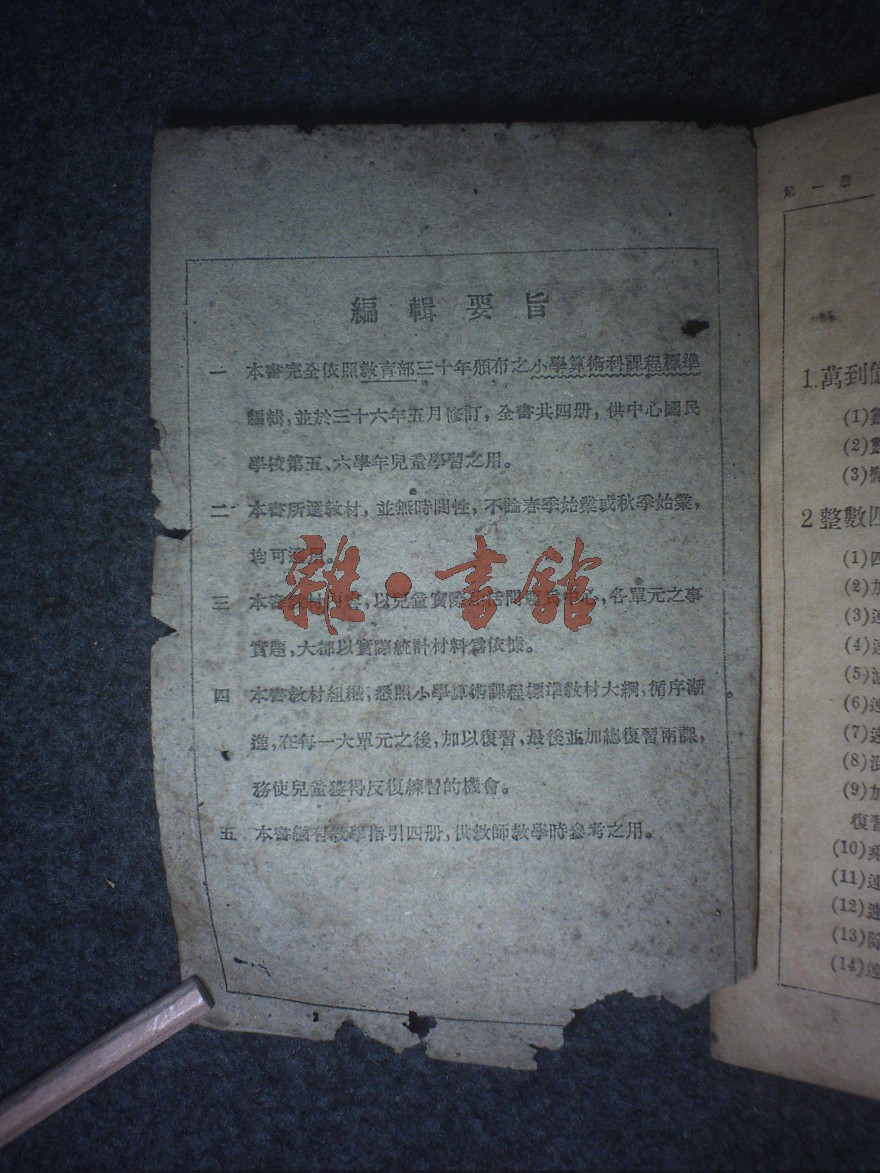 編輯要旨
一 本書完全依照教育部三十年頒布之小學算術科課程標準
編輯,並於三十六年五月修訂,全書共四册,供中心國民
學校第五、六學年兒童學習之用。
二 本書所選教材,並無時間性,不論春季始業或秋季始業,
均可 用。
三 本書教材內容,以兒童實際 活問題 中心,各單元之事
實題,大都以實際統計材料爲依據。
四 本書教材組織,悉照小學算術課程標準教材大綱,循序漸
進,在每一大單元之後,加以復習,最後並加總復習兩課,
務使兒童獲得反復練習的機會。
五 本書編有教學指引四册,供教師教學時參考之用。
雜·書館
第一册
1.萬到億
(1)
(2)
(3)
2 整數四
(1)四
(2)加
(3)連
(4)連
(5)
(6)連
(7)速
(8)混
(9)加
復習
(10)乘
(11)連
(12)速
(13)除
(14)連